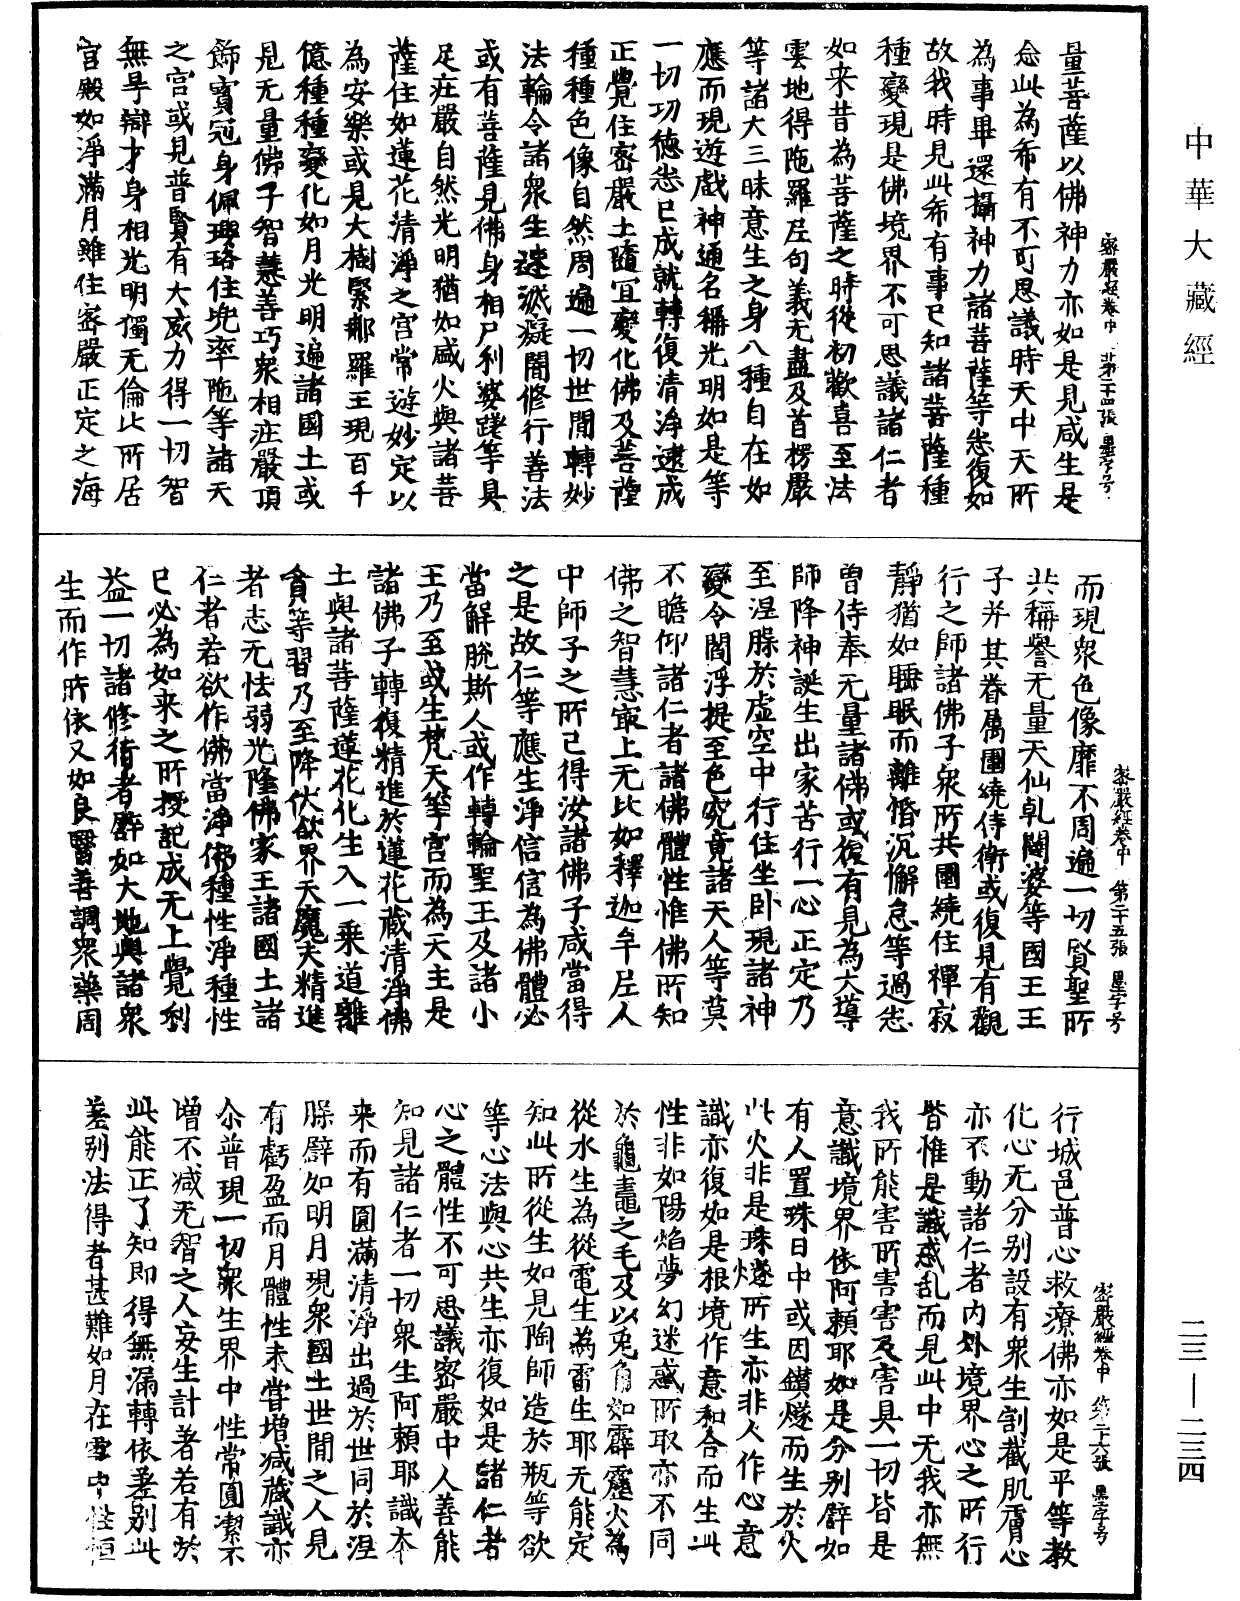 中華大藏經
密嚴經卷中　第二十四張　墨字号
量菩薩以佛神力亦如是見咸生是
念此為希有不可思議時天中天所
為事畢還攝神力諸菩薩等悉復如
故我時見此希有事已知諸菩薩種
種變現是佛境界不可思議諸仁者
如来昔為菩薩之時從初歡喜至法
雲地得陁羅尼句義无盡及首楞嚴
等諸大三昧意生之身八種自在如
應而現遊戲神通名稱光明如是等
一切功德悉已成就轉復清淨逮成
正覺住密嚴土隨宜變化佛及菩薩
種種色像自然周遍一切世間轉妙
法輪令諸衆生速滅癡闇修行善法
或有菩薩見佛身相尸利婆蹉等具
足莊嚴自然光明猶如盛火與諸菩
薩住如蓮花清淨之宫常遊妙定以
為安樂或見大樹緊那羅王現百千
億種種變化如月光明遍諸國土或
見无量佛子智慧善巧衆相莊嚴頂
飾寳冠身佩瓔珞住兜率陁等諸天
之宫或見普賢有大威力得一切智
無导辯才身相光明獨无倫比所居
宫殿如淨滿月雖住密嚴正定之海
密嚴經卷中　第二十五張　墨字号
而現衆色像靡不周遍一切賢聖所
共稱譽无量天仙乹闥婆等國王王
子并其眷属圍繞侍衛或復見有觀
行之師諸佛子衆所共圍繞住禪寂
靜猶如睡眠而離惛沉懈怠等過悉
曾侍奉无量諸佛或復有見為大導
師降神誕生出家苦行一心正定乃
至涅槃於虚空中行住坐卧現諸神
變令閻浮提至色究竟諸天人等莫
不瞻仰諸仁者諸佛體性惟佛所知
佛之智慧最上无比如釋迦牟尼人
中師子之所已得汝諸佛子咸當得
之是故仁等應生淨信信為佛體必
當解脱斯人或作轉輪聖王及諸小
王乃至或生梵天等宫而為天主是
諸佛子轉復精進於蓮花藏清淨佛
土與諸菩薩蓮花化生入一乘道離
貪等習乃至降伏欲界天魔夫精進
者志无怯弱光隆佛家王諸國土諸
仁者若欲作佛當淨佛種性淨種性
已必為如来之所授記成无上覺利
益一切諸修行者譬如大地與諸衆
生而作所依又如良醫善調衆藥周
密嚴經卷中　第二十六張　墨字号
行城邑普心救療佛亦如是平等教
化心无分别設有衆生割截肌膚心
亦不動諸仁者内外境界心之所行
皆惟是識惑乱而見此中无我亦無
我所能害所害害及害具一切皆是
意識境界依阿賴耶如是分别譬如
有人置珠日中或因鑽燧而生於火
此火非是珠燧所生亦非人作心意
識亦復如是根境作意和合而生此
性非如陽焰夢幻迷惑所取亦不同
於龜鼈之毛及以兎角如霹靂火為
從水生為從電生為雷生耶无能定
知此所從生如見陶師造於瓶等欲
等心法與心共生亦復如是諸仁者
心之體性不可思議密嚴中人善能
知見諸仁者一切衆生阿賴耶識夲
来而有圓滿清淨出過於世同於涅
槃譬如明月現衆國土世間之人見
有虧盈而月體性未甞增減藏識亦
尒普現一切衆生界中性常圓潔不
增不減无智之人妄生計著若有於
此能正了知即得無漏轉依差别此
差别法得者甚難如月在雲中性恒
二三—二三四